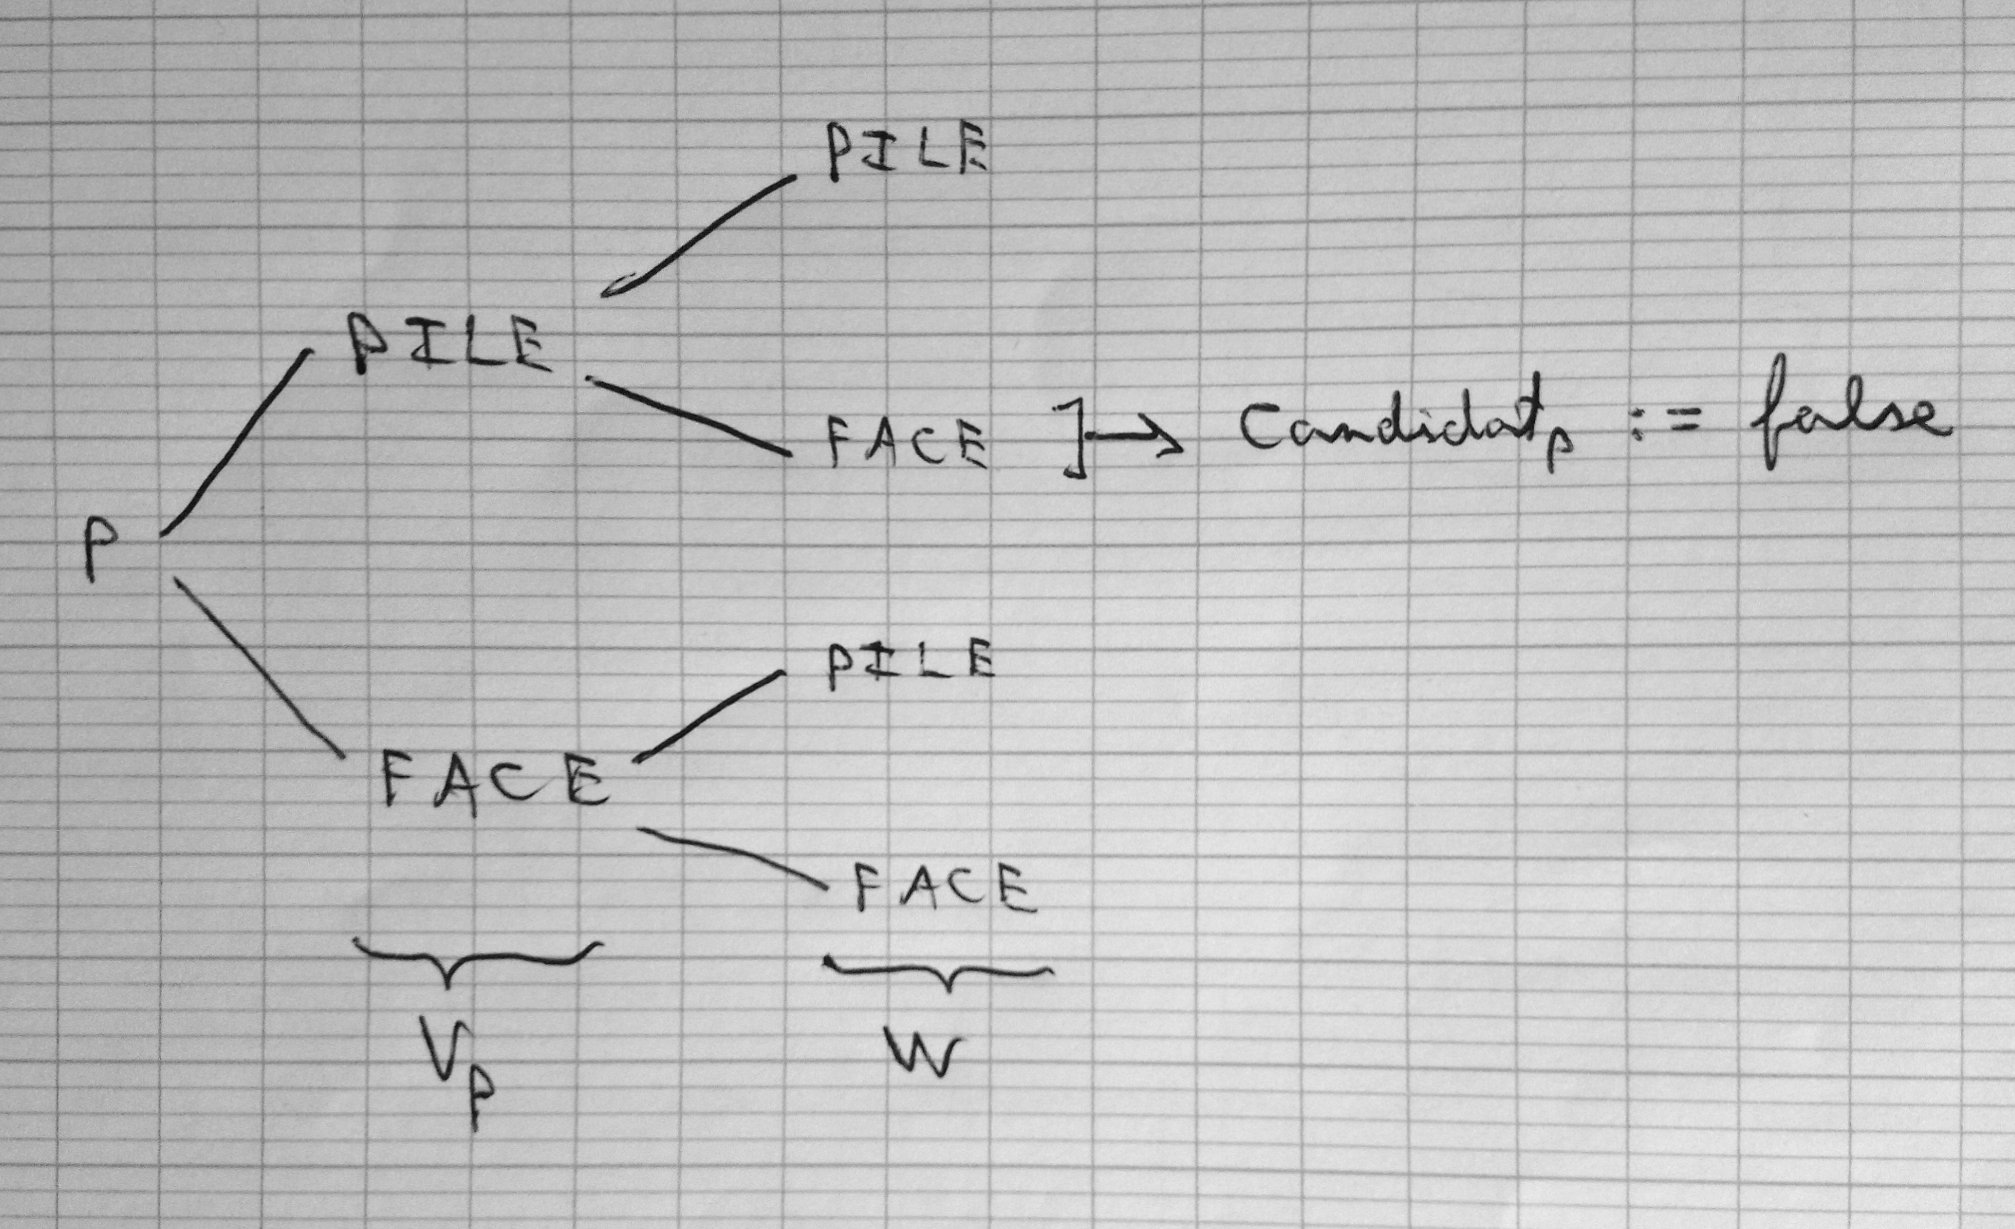 PILE
PILE
FACE ]→ Candidat_p := false
P
PILE
FACE
FACE
V_p W